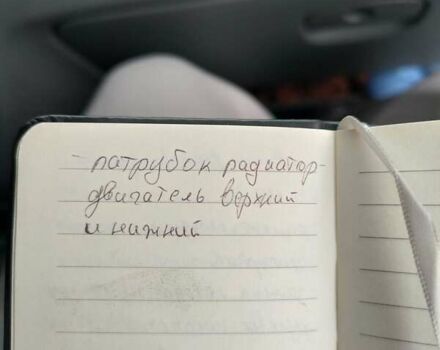 - патрубок радиатор-
двигатель верхний
и нижний